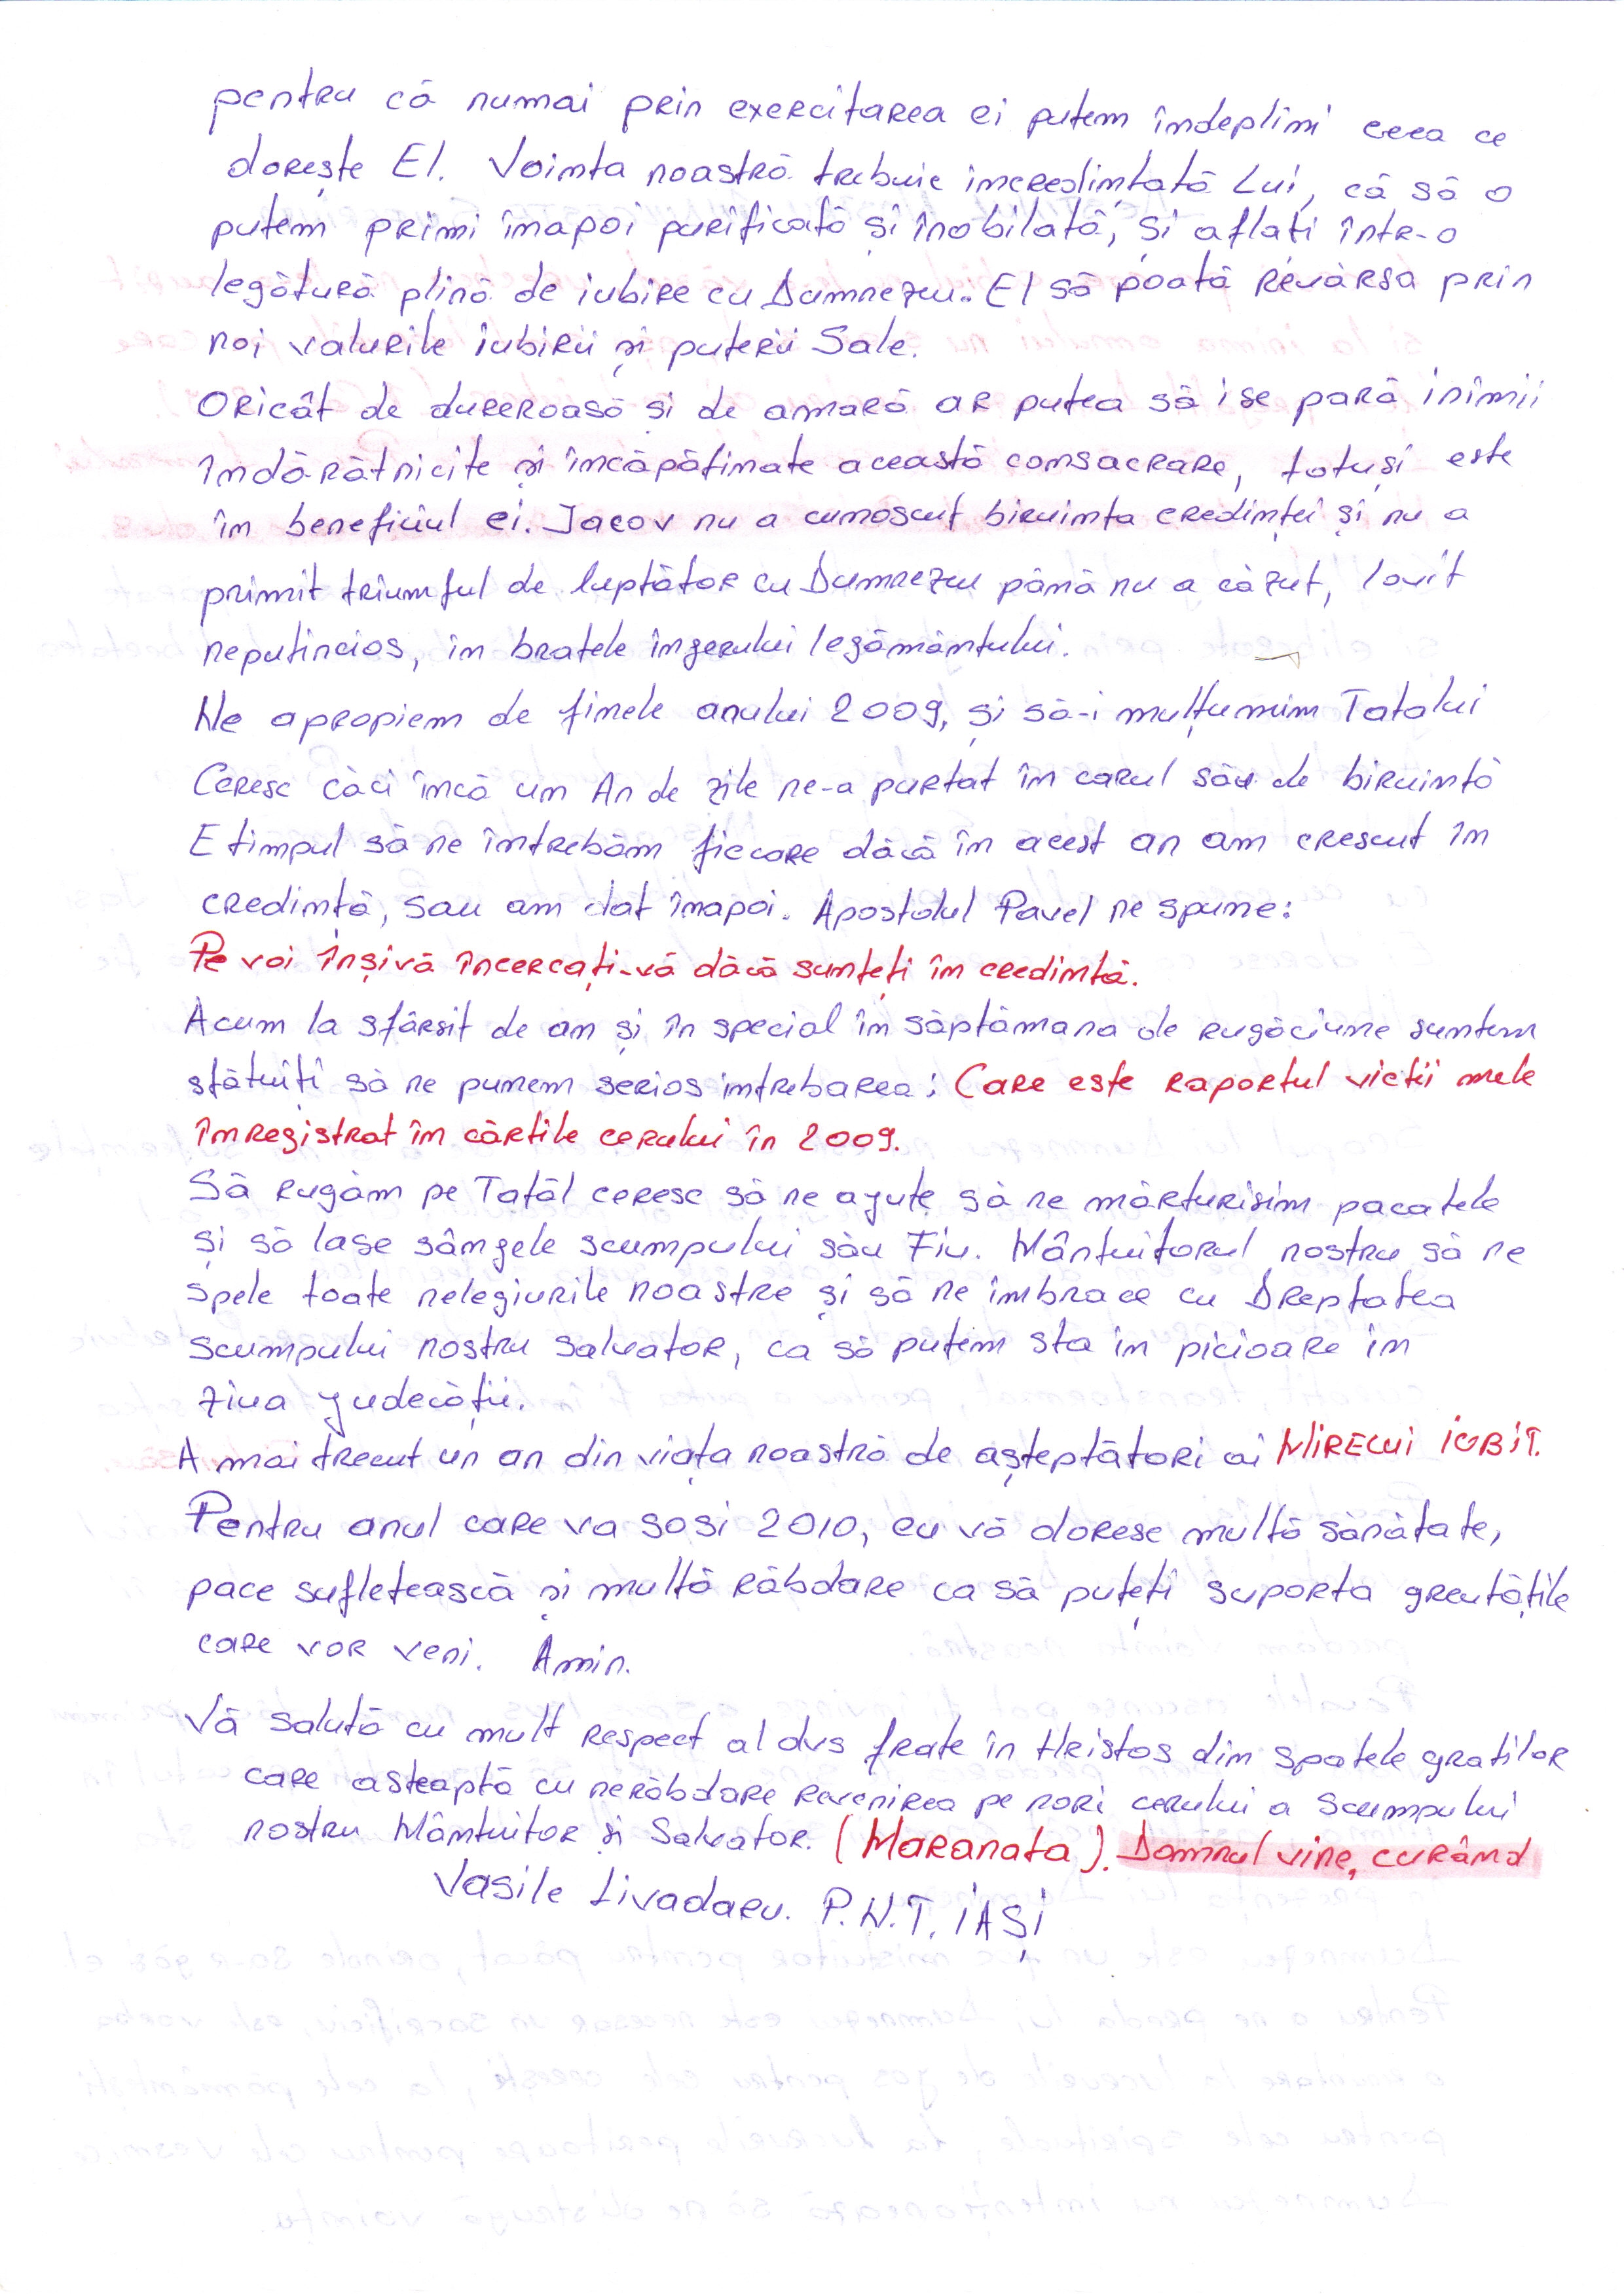 pentru că numai prin exercitarea ei putem îndeplini ceea ce
dorește El. Voimta noastră trebuie imcredimțată Lui, că să o
putem primi înapoi purificată și înobilată, și aflați într-o
legătură plină de iubire cu Dumnezeu. El să poată revărsa prin
noi valurile iubirii și puterii Sale.
Oricât de dureroasă și de amară ar putea să i se pară inimii
îndărătnicite și încăpățimate această comsacrare, totuși este
îm beneficiul ei. Jacov nu a cumoscut biruimta credimței și nu a
primit triumful de luptător cu Dumnezeu până nu a căzut, lovit
neputincios, in bratele îmgerului legământului.
Ne apropiem de fimele anului 2009, și să-i mulțumim Tatălui
Ceresc căci încă um An de zile ne-a purtat îm carul său de biruimtă
E timpul să ne întrebăm fiecare dăcă în acest an am crescut îm
credimță, sau am dat îmapoi. Apostolul Pavel ne spume:
Pe voi înșivă încercați-vă dăcă sumteți îm credimtă.
Acum la sfârsit de am și în special îm săptămana de rugăciume suntem
sfătuiți să ne pumem serios imtrebarea: Care este raportul vietii mele
îmregistrat îm cărtile cerului în 2009.
Să rugăm pe Tatăl ceresc să ne ajute să ne mărturisim pacatele
și să lase sâmgele scumpului său Fiu. Mântuitorul nostru să ne
spele toate nelegiurile noastre și să ne îmbrace cu Dreptatea
scumpului nostru salvator, ca să putem sta in picioare im
ziua judecății.
A mai trecut un an din viața noastră de așteptători ai MIRELUI IUBIT.
Pentru anul care va sosi 2010, eu vă doresc multă sănătate,
pace sufletească și multă răbdare ca să puteți suporta greutățile
care vor veni. Amin.
Vă salută cu mult respect al dvs frate în Hristos dim spatele gratilor
care asteaptă cu nerăbdare revenirea pe nori cerului a scumpului
nostru Mâmtuitor și Salvator. (Maranata). Domnul vine, curâmd
Vasile Livadaru. P.N.T. IAȘI